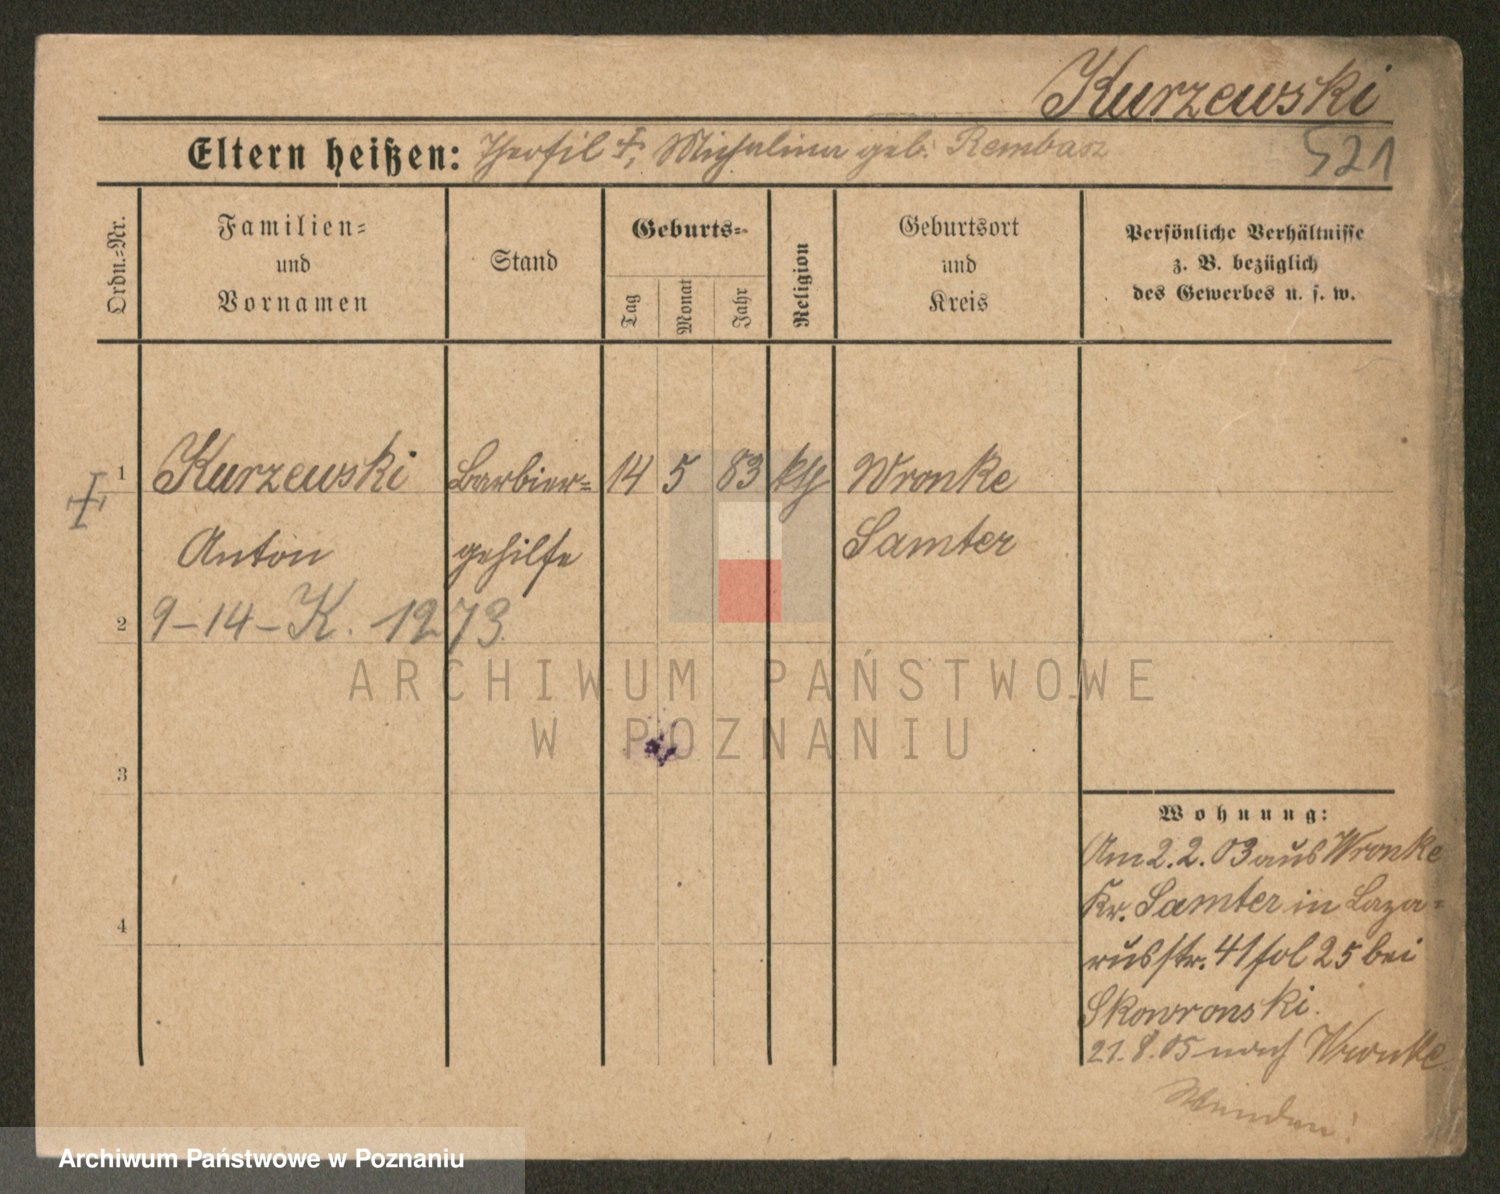 Kurzewski
521
Eltern heißen: Theofil †, Michalina geb. Rembasz
Ordn.-Nr.
Familien-
und
Vornamen
Stand
Geburts-
Tag
Monat
Jahr
Religion
Geburtsort
und
Kreis
Persönliche Verhältnisse
z. B. bezüglich
des Gewerbes u. s. w.
1 Kurzewski Barbier= 14 5 83 kth Wronke
Anton gehilfe Samter
2 9-14-K. 1273
ARCHIWUM PAŃSTWOWE
W POZNANIU
3
4
Wohnung:
Am 2.2.03 aus Wronke
Kr. Samter in Laza=
russtr. 41 fol 25 bei
Skowronski.
21.8.05 nach Wronke
Wenden!
Archiwum Państwowe w Poznaniu